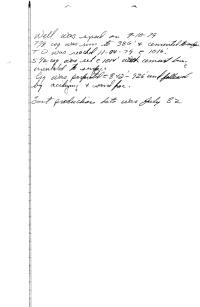 Well was spud on 9-10-79
7 5/8 csg was run to 386' & cemented to surface
T D was reached 11-04-79 @ 1016'
5 1/2 csg was set @ 1014 with cement
cemented to surface
Csg was perforated 842 - 926 and followed
by acidizing & sand frac.
First production date was July 82